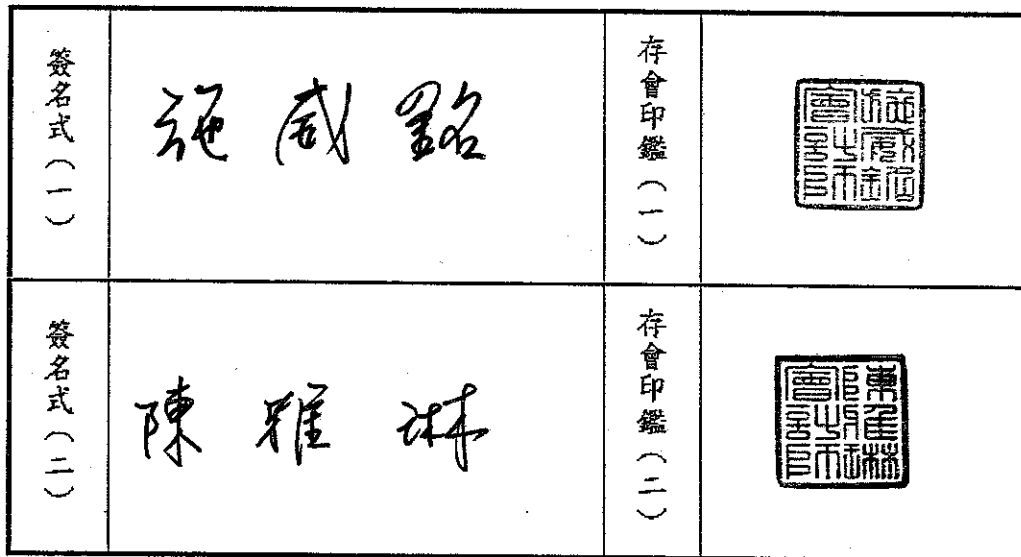 簽名式(一)
施威銘
存會印鑑(一)
施威銘會計師
簽名式(二)
陳雅琳
存會印鑑(二)
陳雅琳會計師